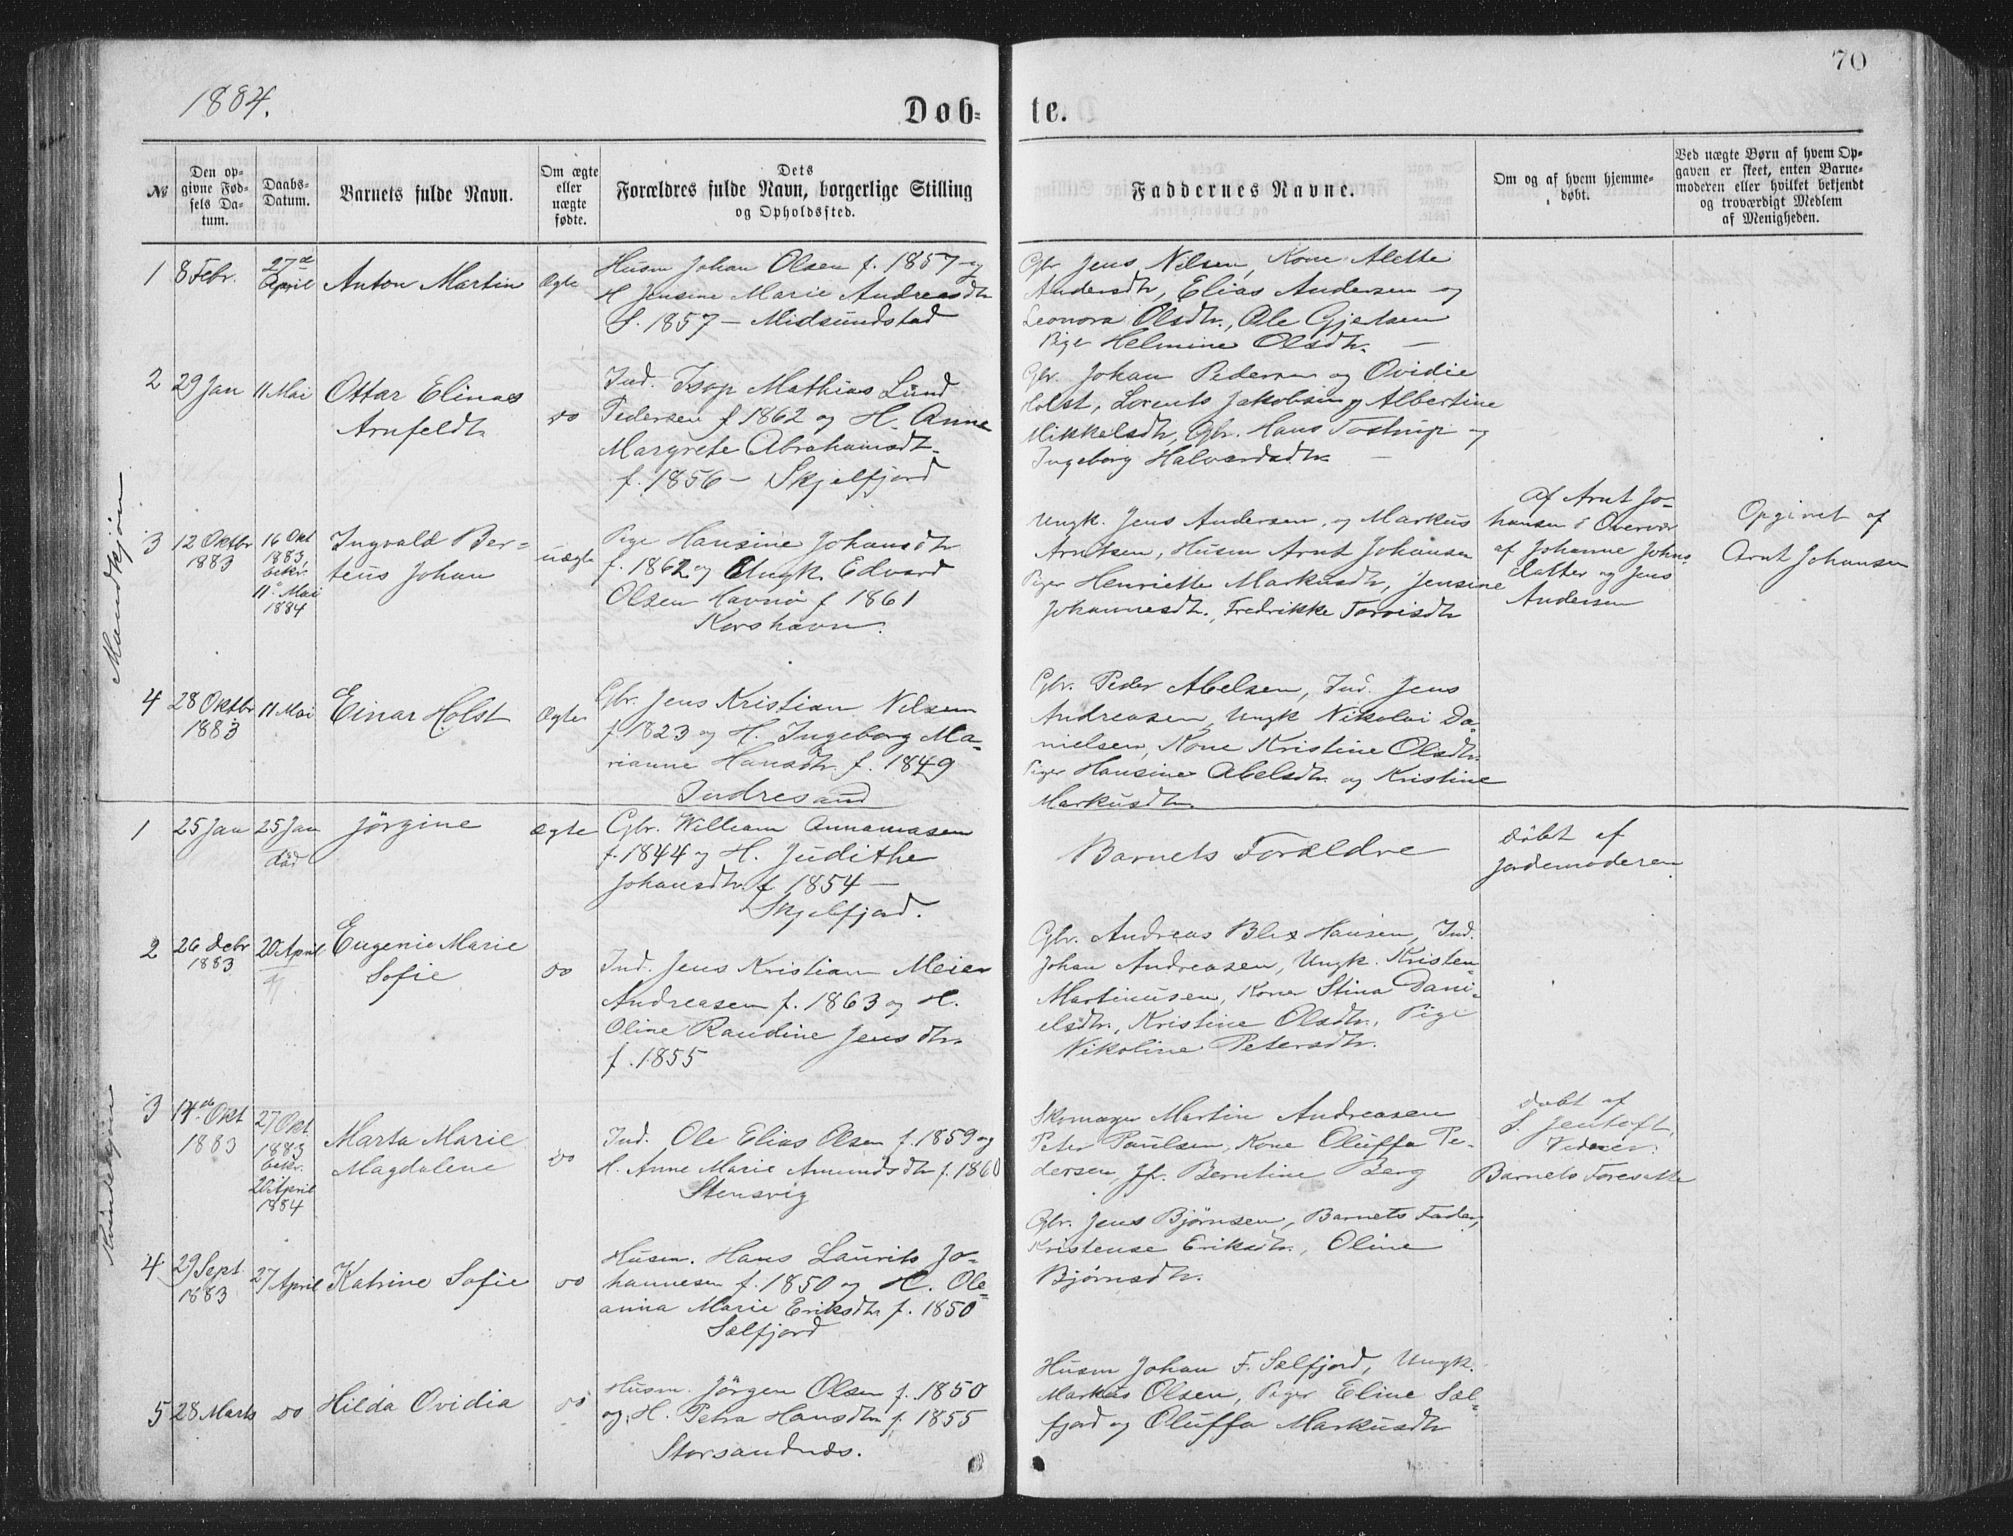 1884.
Døb-
te.
70
№
Den op-
givne Fød-
sels Da-
tum.
Daabs-
Datum.
Barnets fulde Navn.
Om ægte
eller
uægte
fødte.
Dets
Forældres fulde Navn, borgerlige Stilling
og Opholdssted.
Faddernes Navne.
Om og af hvem hjemme-
døbt.
Ved uægte Børn af hvem Op-
gaven er skeet, enten Barne-
moderen eller hvilket bekjendt
og troværdigt Medlem
af Menigheden.
Mandkjøn
1
8 Febr.
27de
April
Anton Martin
Ægte
Husm Johan Olsen f. 1857 og
H. Jensine Marie Andreasdtr
f. 1857 – Midsundstad
Gbr. Jens Nilsen, Kone Alette
Andersdtr, Elias Andersen og
Leonora Olsdtr., Ole Gjetsen
Pige Helmine Olsdtr. –
2
29 Jan
11 Mai
Ottar Elinas
Arnfeldt
do
Ind. Isop Mathias Lund
Pedersen f 1862 og H. Anne
Margrete Abrahamsdt.
f. 1856 – Skjelfjord
Gbr. Johan Pedersen og Ovidie
Holst, Lorents Jakobsen og Albertine
Mikkelsdtr, Gbr. Hans Tostrup og
Ingeborg Halvardsdtr –
3
12 Oktbr
1883
16 Okt
1883,
bekr.
11. Mai
1884
Ingvald Ber-
teus Johan
uægte
Pige Hansine Johansdtr
f. 1862 og Ungk. Edvard
Olsen Havnø f 1861
Korshavn.
Ungk. Jens Andersen, og Markus
Arntsen, Husm Arnt Johansen
Piger Henriette Markusdtr, Jensine
Johannesdt., Fredrikke Torrisdtr
af Arnt Jo-
hansen i Overvær
af Johanne Johns-
datter og Jens
Andersen
Opgivet af
Arnt Johansen
4
28 Oktbr
1883
11 Mai
Einar Holst
Ægte
Gbr. Jens Kristian Nilsen
f 1823 og H. Ingeborg Ma-
rianne Hansdtr. f. 1849
Indresand
Gbr. Peder Abelsen, Ind. Jens
Andreasen, Ungk Nikolai Da-
nielsen, Kone Kristine Olsdtr.
Piger Hansine Abelsdtr og Kristine
Markusdtr.
Kvindekjøn
1
25 Jan
25 Jan
død
Jørgine
Ægte
Gbr. William Annanasen
f. 1844 og H. Judithe
Johansdtr. f 1854 –
Skjelfjord.
Barnets Forældre
døbt af
Jordemoderen
2
26 Debr
1883
20 April
Eugenie Marie
Sofie
do
Ind. Jens Kristian Meier
Andreasen f. 1863 og H.
Oline Randine Jensdtr
f. 1855
Gbr. Andreas Blix Hansen, Ind.
Johan Andreasen, Ungk. Kristen
Martinusen, Koner Stina Dani-
elsdtr., Kristine Olsdtr. Pige
Nikoline Petersdtr.
3
14de Okt
1883
27 Okt
1883
bekr.
20 April
1884
Marta Marie
Magdalene
do
Ind. Ole Elias Olsen f. 1859 og
H. Anne Marie Amundsdtr f. 1860
Stensvig
Skomager Martin Andreasen
Peter Paulsen, Kone Oluffa Pe-
dersen, Jfr. Berntine Berg
døbt af
S. Jentoft.
Vidner:
Barnets Foresatte
4
29 Sept
1883
27 April
Katrine Sofie
do
Husm. Hans Laurits Jo-
hannesen f. 1850 og H. Ole-
anna Marie Eriksdtr f. 1850
Selfjord
Gbr. Jens Bjørnsen, Barnets Fader,
Kristense Eriksdtr., Oline
Bjørnsdtr.
5
28 Marts
do
Hilda Ovidia
do
Husm. Jørgen Olsen f. 1850
og H. Petra Hansdtr f. 1855
Storsandnæs.
Husm Johan F. Selfjord, Ungk.
Markus Olsen, Piger Eline Sel-
fjord og Oluffa Markusdtr